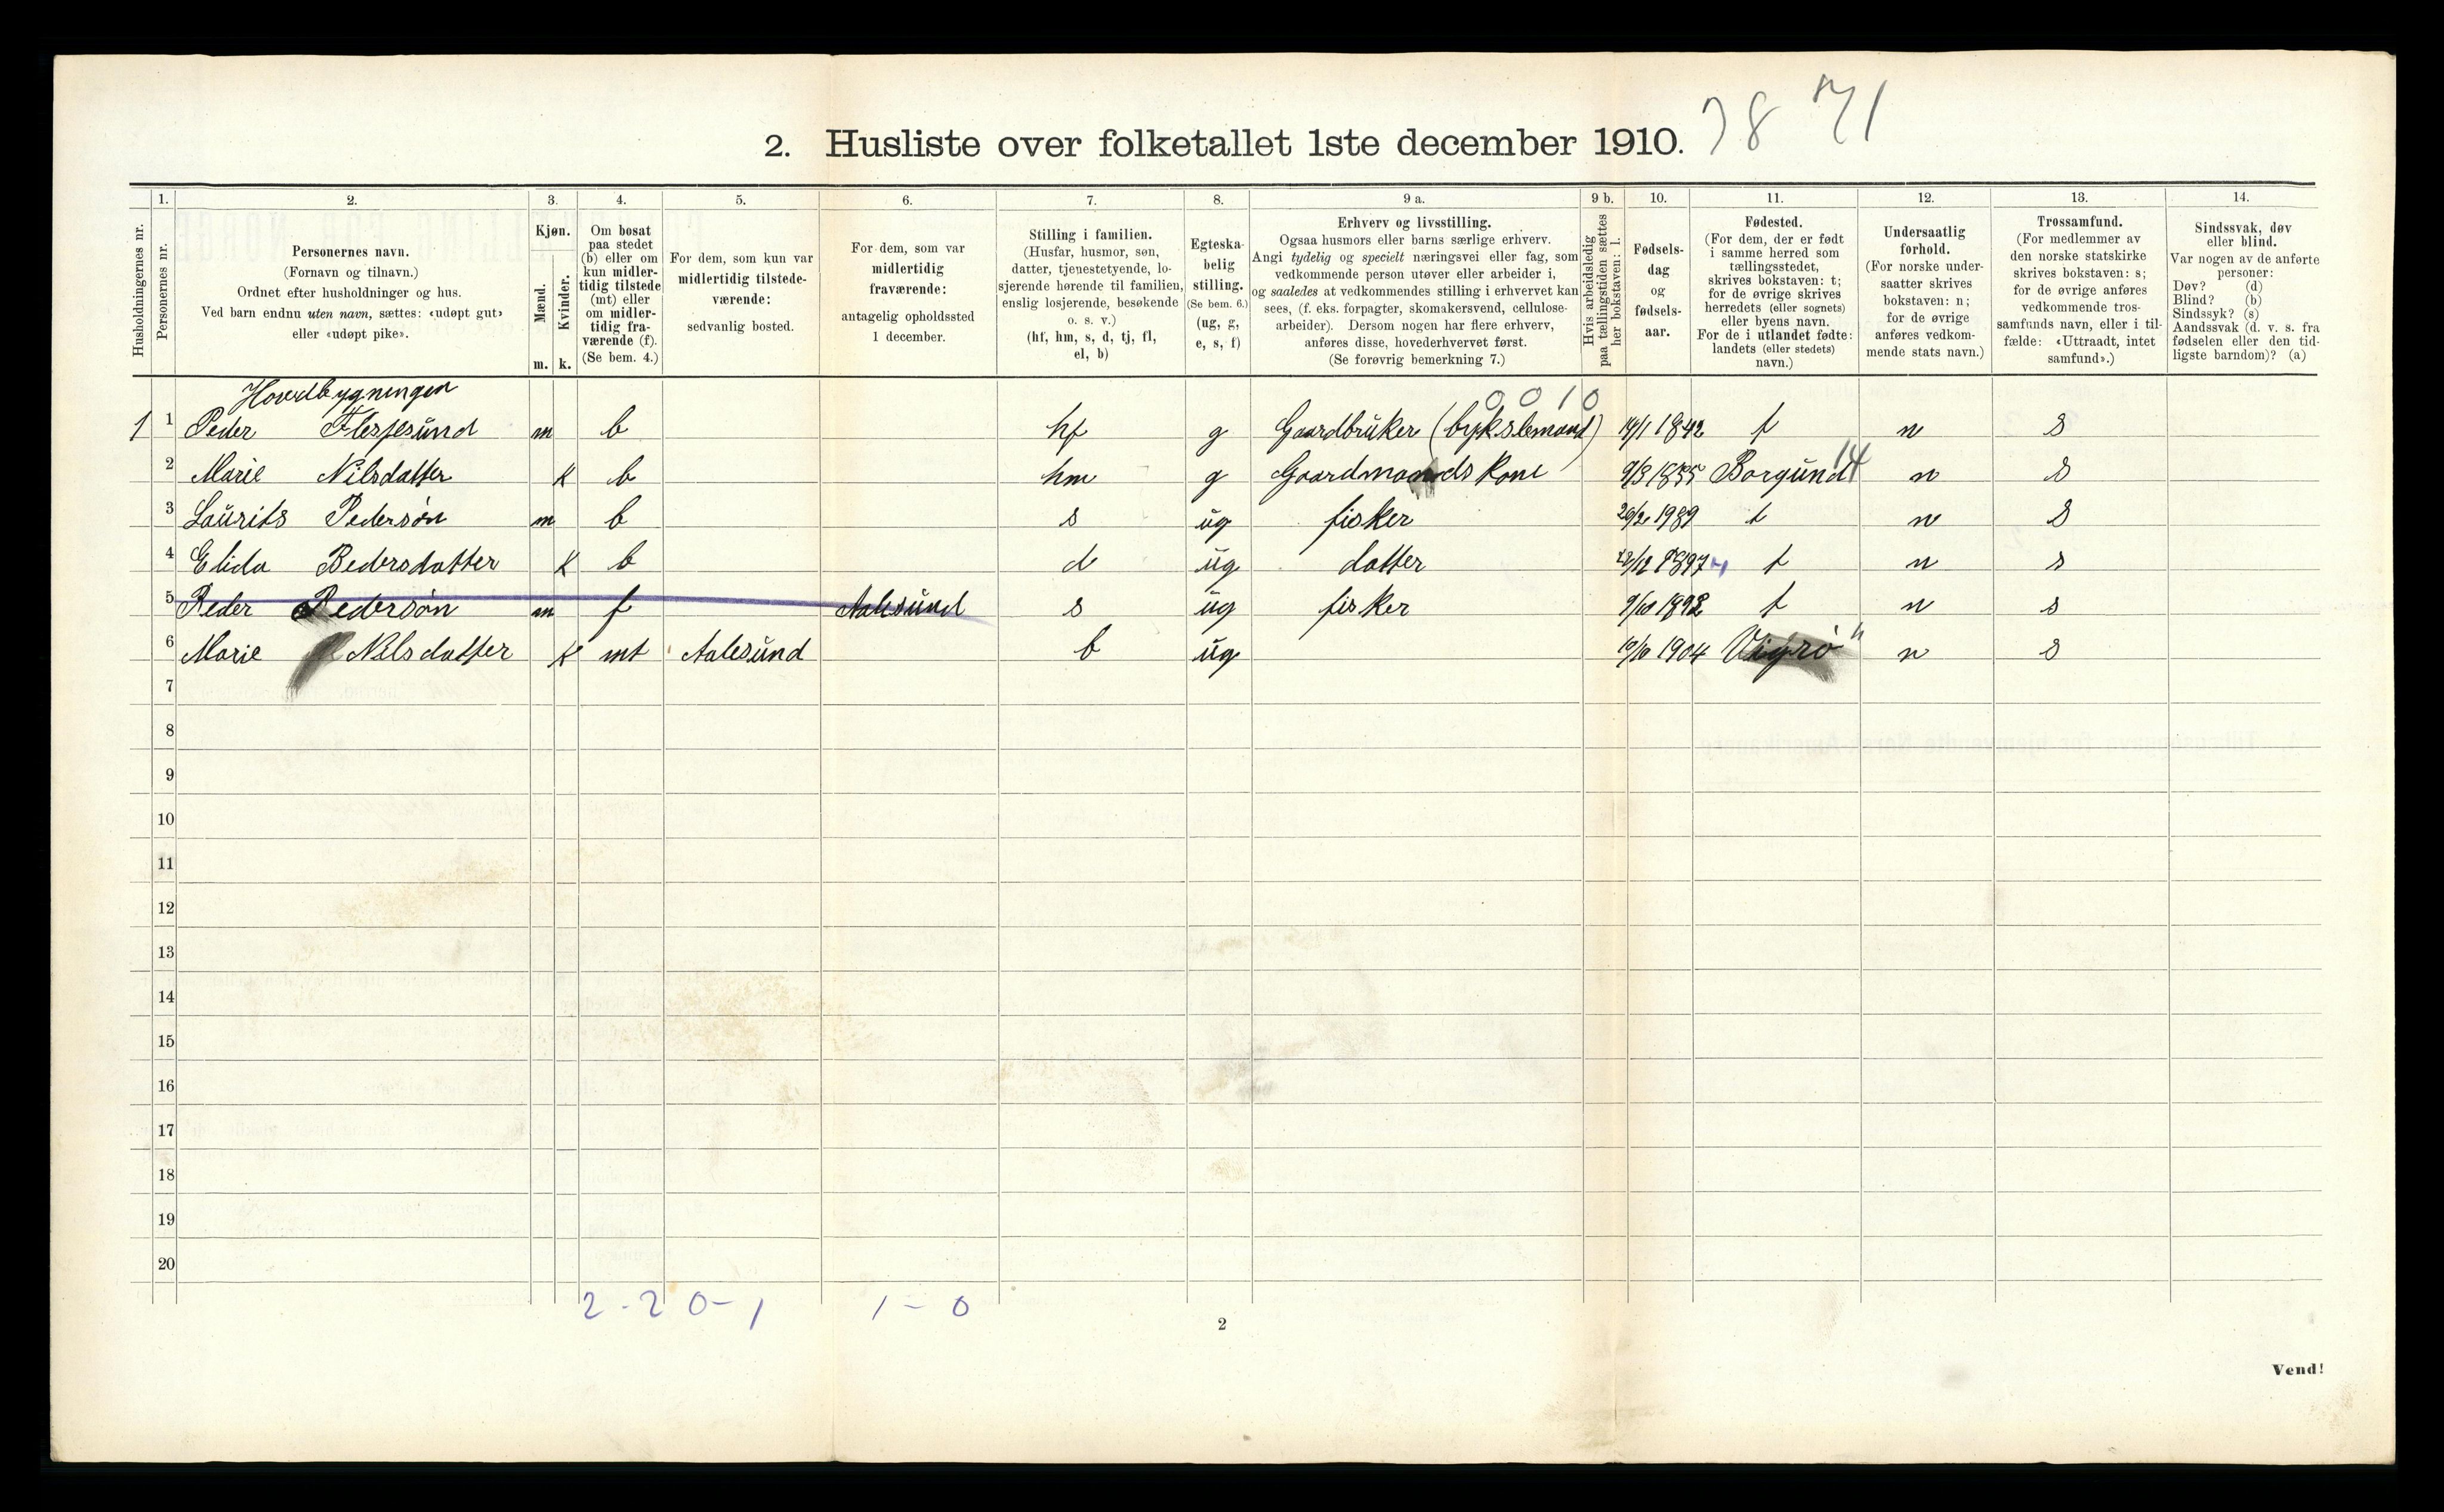 78 71
2. Husliste over folketallet 1ste december 1910.
Husholdningernes nr.
1.
Personernes nr.
2.
Personernes navn.
(Fornavn og tilnavn.)
Ordnet efter husholdninger og hus.
Ved barn endnu uten navn, sættes: «udøpt gut»
eller «udøpt pike».
3.
Kjøn.
Mænd.
Kvinder.
m. k.
4.
Om bosat
paa stedet
(b) eller om
kun midler-
tidig tilstede
(mt) eller
om midler-
tidig fra-
værende (f).
(Se bem. 4.)
5.
For dem, som kun var
midlertidig tilstede-
værende:
sedvanlig bosted.
6.
For dem, som var
midlertidig
fraværende:
antagelig opholdssted
1 december.
7.
Stilling i familien.
(Husfar, husmor, søn,
datter, tjenestetyende, lo-
sjerende hørende til familien,
enslig losjerende, besøkende
o. s. v.)
(hf, hm, s, d, tj, fl,
el, b)
8.
Egteska-
belig
stilling.
(Se bem. 6.)
(ug, g,
e, s, f)
9 a.
Erhverv og livsstilling.
Ogsaa husmors eller barns særlige erhverv.
Angi tydelig og specielt næringsvei eller fag, som
vedkommende person utøver eller arbeider i,
og saaledes at vedkommendes stilling i erhvervet kan
sees, (f. eks. forpagter, skomakersvend, cellulose-
arbeider). Dersom nogen har flere erhverv,
anføres disse, hovederhvervet først.
(Se forøvrig bemerkning 7.)
9 b.
Hvis arbeidsledig
paa tællingstiden sættes
her bokstaven: l.
10.
Fødsels-
dag
og
fødsels-
aar.
11.
Fødested.
(For dem, der er født
i samme herred som
tællingsstedet,
skrives bokstaven: t;
for de øvrige skrives
herredets (eller sognets)
eller byens navn.
For de i utlandet fødte:
landets (eller stedets)
navn.)
12.
Undersaatlig
forhold.
(For norske under-
saatter skrives
bokstaven: n;
for de øvrige
anføres vedkom-
mende stats navn.)
13.
Trossamfund.
(For medlemmer av
den norske statskirke
skrives bokstaven: s;
for de øvrige anføres
vedkommende tros-
samfunds navn, eller i til-
fælde: «Uttraadt, intet
samfund».)
14.
Sindssvak, døv
eller blind.
Var nogen av de anførte
personer:
Døv? (d)
Blind? (b)
Sindssyk? (s)
Aandssvak (d. v. s. fra
fødselen eller den tid-
ligste barndom)? (a)
Hovedbygningen
0 0 1 0
1 1 Peder Flesjesund m b hf g Gaardbruker (bykslemand) 14/1 1842 t n s
2 Marie Nilsdatter k b hm g Gaardmands Kone 9/3 1855 Borgund 14 n s
3 Laurits Pedersøn m b s ug fisker 20/2 1989 t n s
4 Elida Bedersdatter k b d ug datter /12 1897 t n s
5 Peder Pedersøn m f Aalesund s ug fisker 9/10 1892 t n s
6 Marie Nilsdatter k mt Aalesund b ug 10/10 1904 Vigrø " n s
7
8
9
10
11
12
13
14
15
16
17
18
19
20
2 - 2 0 - 1 1 - 0
2
Vend!